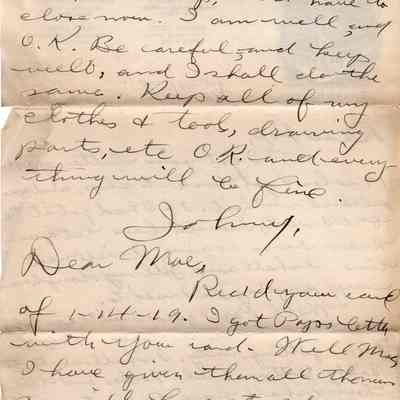 have to
close now. I am well, and
O.K. Be careful, and keep
well, and I shall do the
same. Keep all of my
clothes & tools, drawing
parts, etc O.K. and every-
thing will be fine.
Johnny,
Dear Mae,
Rec'd your card
of 1-14-19. I got Pops letter
with your card. Well Mae,
I have given them all